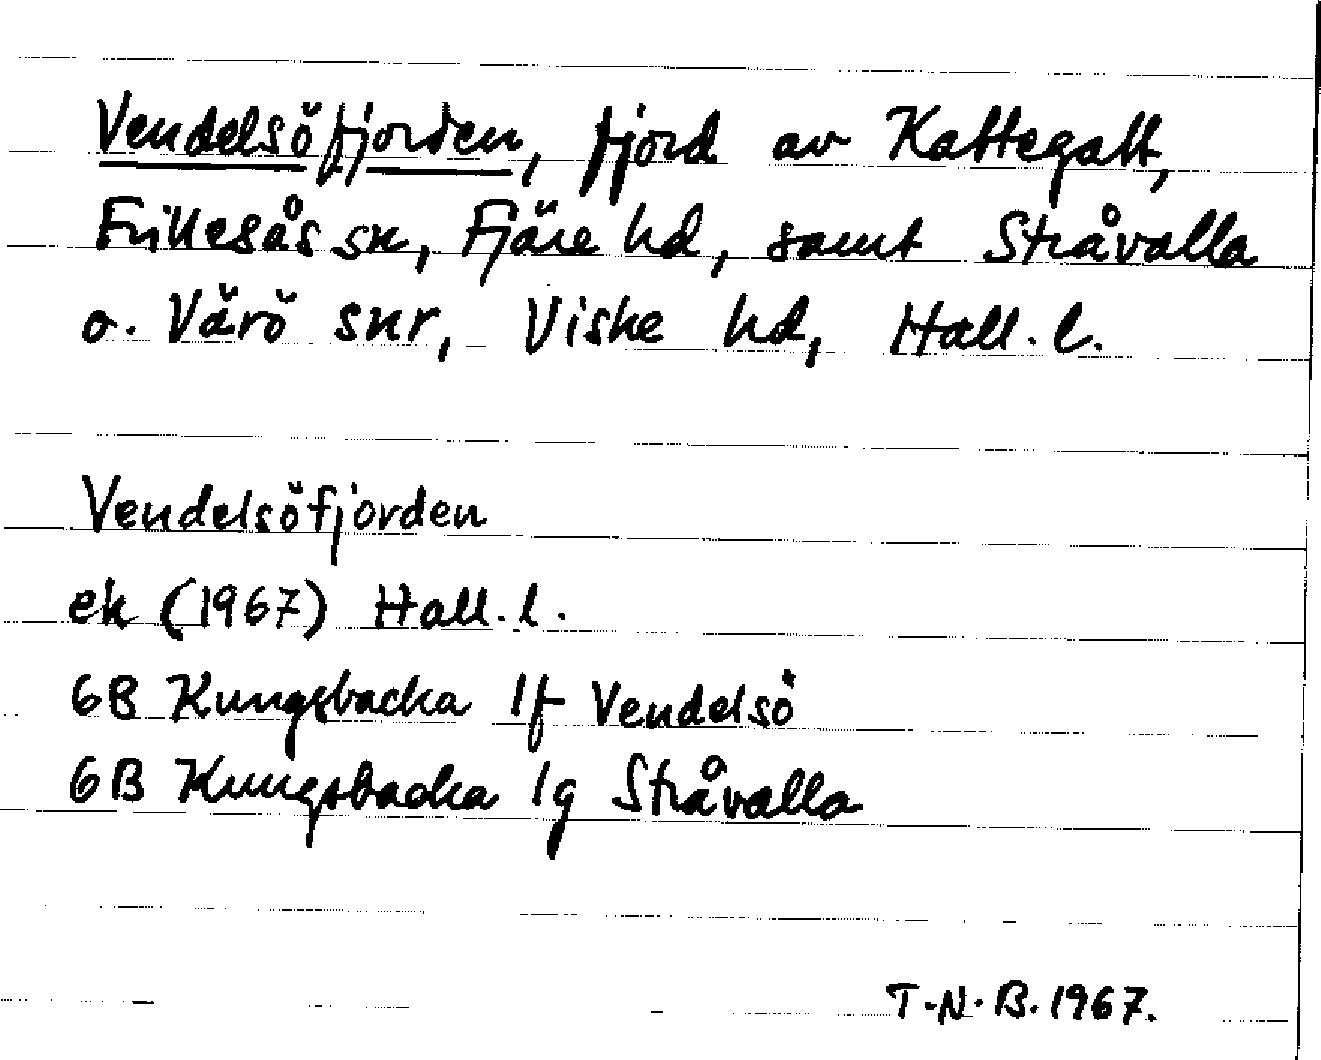 Vendelsöfjorden, fjord av Kattegatt,
Frillesås sn, Fjäre hd, samt Stråvalla
o. Värö snr, Viske hd, Hall. l.
Vendelsöfjorden
ek (1967) Hall. l.
6B Kungsbacka 1f Vendelsö
6B Kungsbacka 1g Stråvalla
T.N.B. 1967.